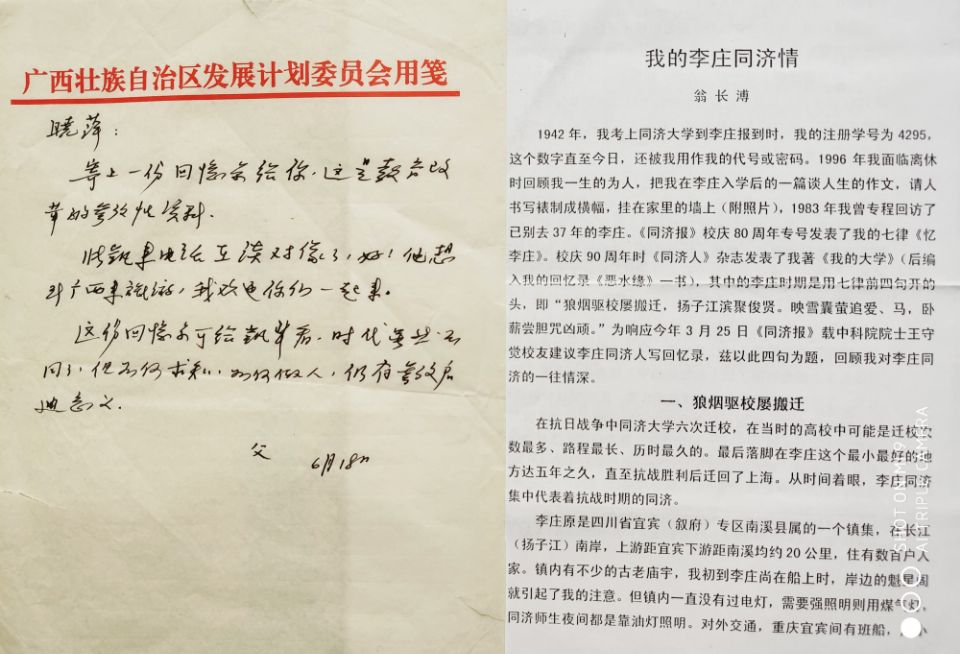 广西壮族自治区发展计划委员会用笺
晓萍：
寄上一份回忆录给你，这是教育改
革的参考性资料。
凯
电话
谈对像了，好！他想
到广西来旅游，我欢迎你们一起来。
这份回忆录可给凯
看，时代虽然不
同了，但如何求知，如何做人，仍有参考启
迪意义。
父
6月18日
我的李庄同济情
翁长溥
1942 年，我考上同济大学到李庄报到时，我的注册学号为 4295，
这个数字直至今日，还被我用作我的代号或密码。1996 年我面临离休
时回顾我一生的为人，把我在李庄入学后的一篇谈人生的作文，请人
书写裱制成横幅，挂在家里的墙上（附照片），1983 年我曾专程回访了
已别去 37 年的李庄。《同济报》校庆 80 周年专号发表了我的七律《忆
李庄》。校庆 90 周年时《同济人》杂志发表了我著《我的大学》（后编
入我的回忆录《恶水缘》一书），其中的李庄时期是用七律前四句开的
头，即“狼烟驱校屡搬迁，扬子江滨聚俊贤。映雪囊萤追爱、马，卧
薪尝胆咒凶顽。”为响应今年 3 月 25 日《同济报》载中科院院士王守
觉校友建议李庄同济人写回忆录，兹以此四句为题，回顾我对李庄同
济的一往情深。
一、狼烟驱校屡搬迁
在抗日战争中同济大学六次迁校，在当时的高校中可能是迁校次
数最多、路程最长、历时最久的。最后落脚在李庄这个最小最好的地
方达五年之久，直至抗战胜利后迁回了上海。从时间着眼，李庄同济
集中代表着抗战时期的同济。
李庄原是四川省宜宾（叙府）专区南溪县属的一个镇集，在长江
（扬子江）南岸，上游距宜宾下游距南溪均约 20 公里，住有数百户人
家。镇内有不少的古老庙宇，我初到李庄尚在船上时，岸边的魁星阁
就引起了我的注意。但镇内一直没有过电灯，需要强照明则用煤气灯，
同济师生夜间都是靠油灯照明。对外交通，重庆宜宾间有班船，
小
SHOT ON MI 9
AI TRIPLE CAMERA